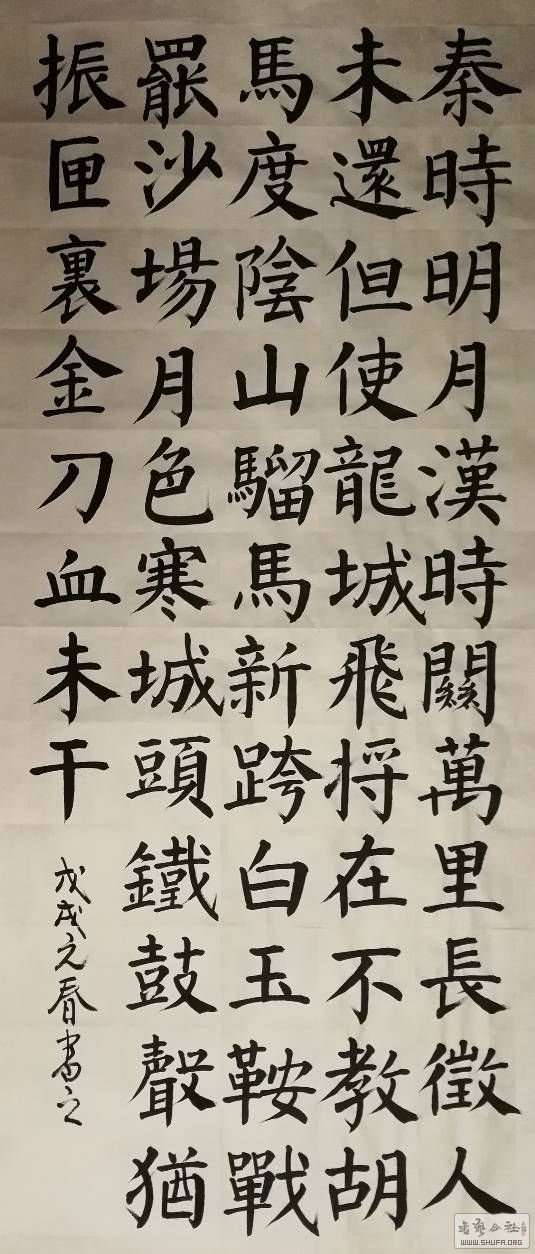 秦時明月漢時關萬里長徵人
未還但使龍城飛将在不教胡
馬度陰山騮馬新跨白玉鞍戰
罷沙場月色寒城頭鐵鼓聲猶
振匣裏金刀血未干
戊戌元春書之
書藝公社
WWW.SHUFA.ORG